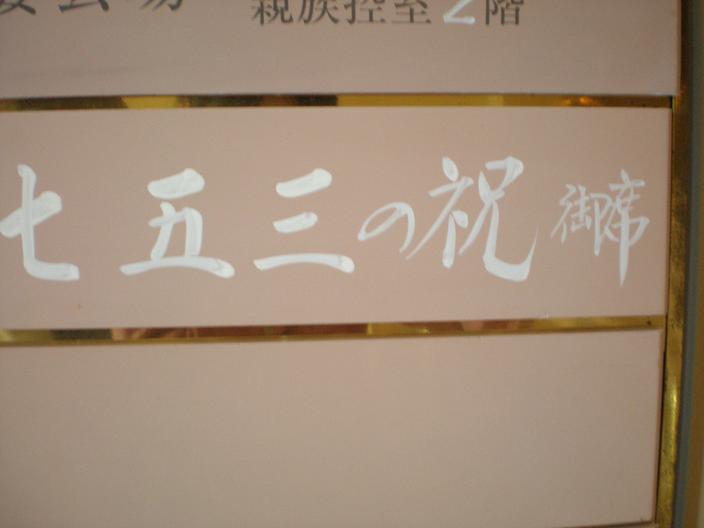 宴会場 親族控室 2階
七五三の祝 御席